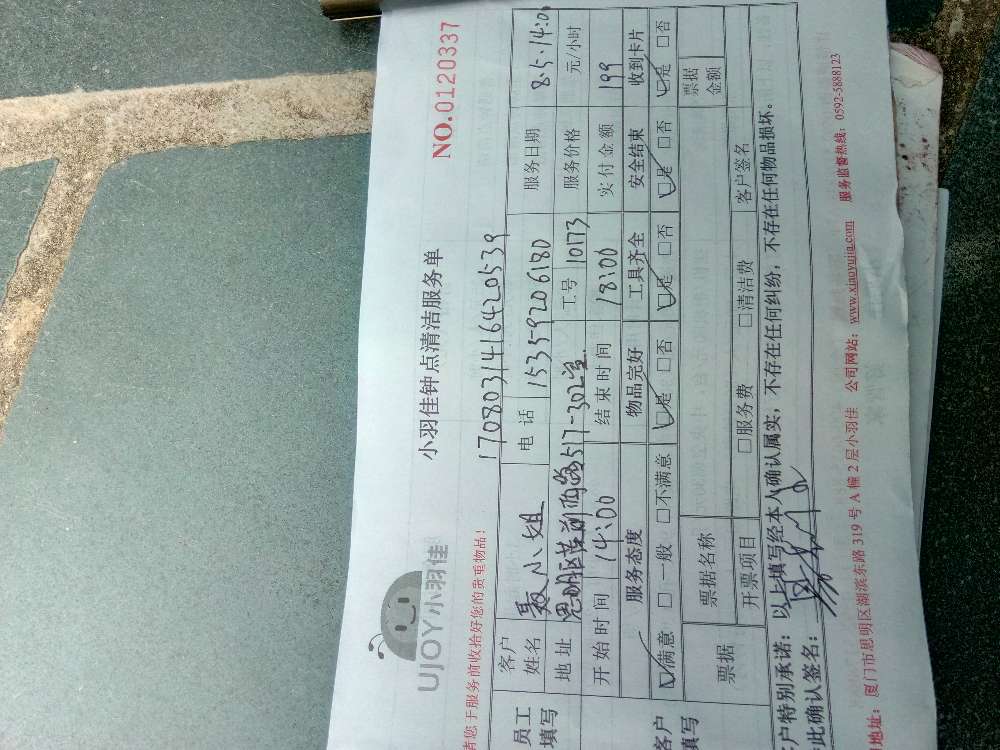 UJOY小羽佳
小羽佳钟点清洁服务单
NO.0120337
者您于服务前收拾好您的贵重物品!
170803141641420539
员工填写
客户姓名 聂小姐 电话 15359206180 服务日期 8.5.14:0
地址 思明区莲前西路517-302室 工号 10173 服务价格 元/小时
开始时间 14:00 结束时间 18:00 实付金额 199
客户填写
服务态度 物品完好 工具齐全 安全结束 收到卡片
☑满意 □一般 □不满意 ☑是 □否 ☑是 □否 ☑是 □否 ☑是 □否
票据 票据名称 票据金额
开票项目 □服务费 □清洁费 客户签名
户特别承诺:以上填写经本人确认属实,不存在任何纠纷,不存在任何物品损坏。
此确认签名:
地址:厦门市思明区湖滨东路319号A幢2层小羽佳 公司网站:www.xiaoyujia.com 服务监督热线:0592-5888123